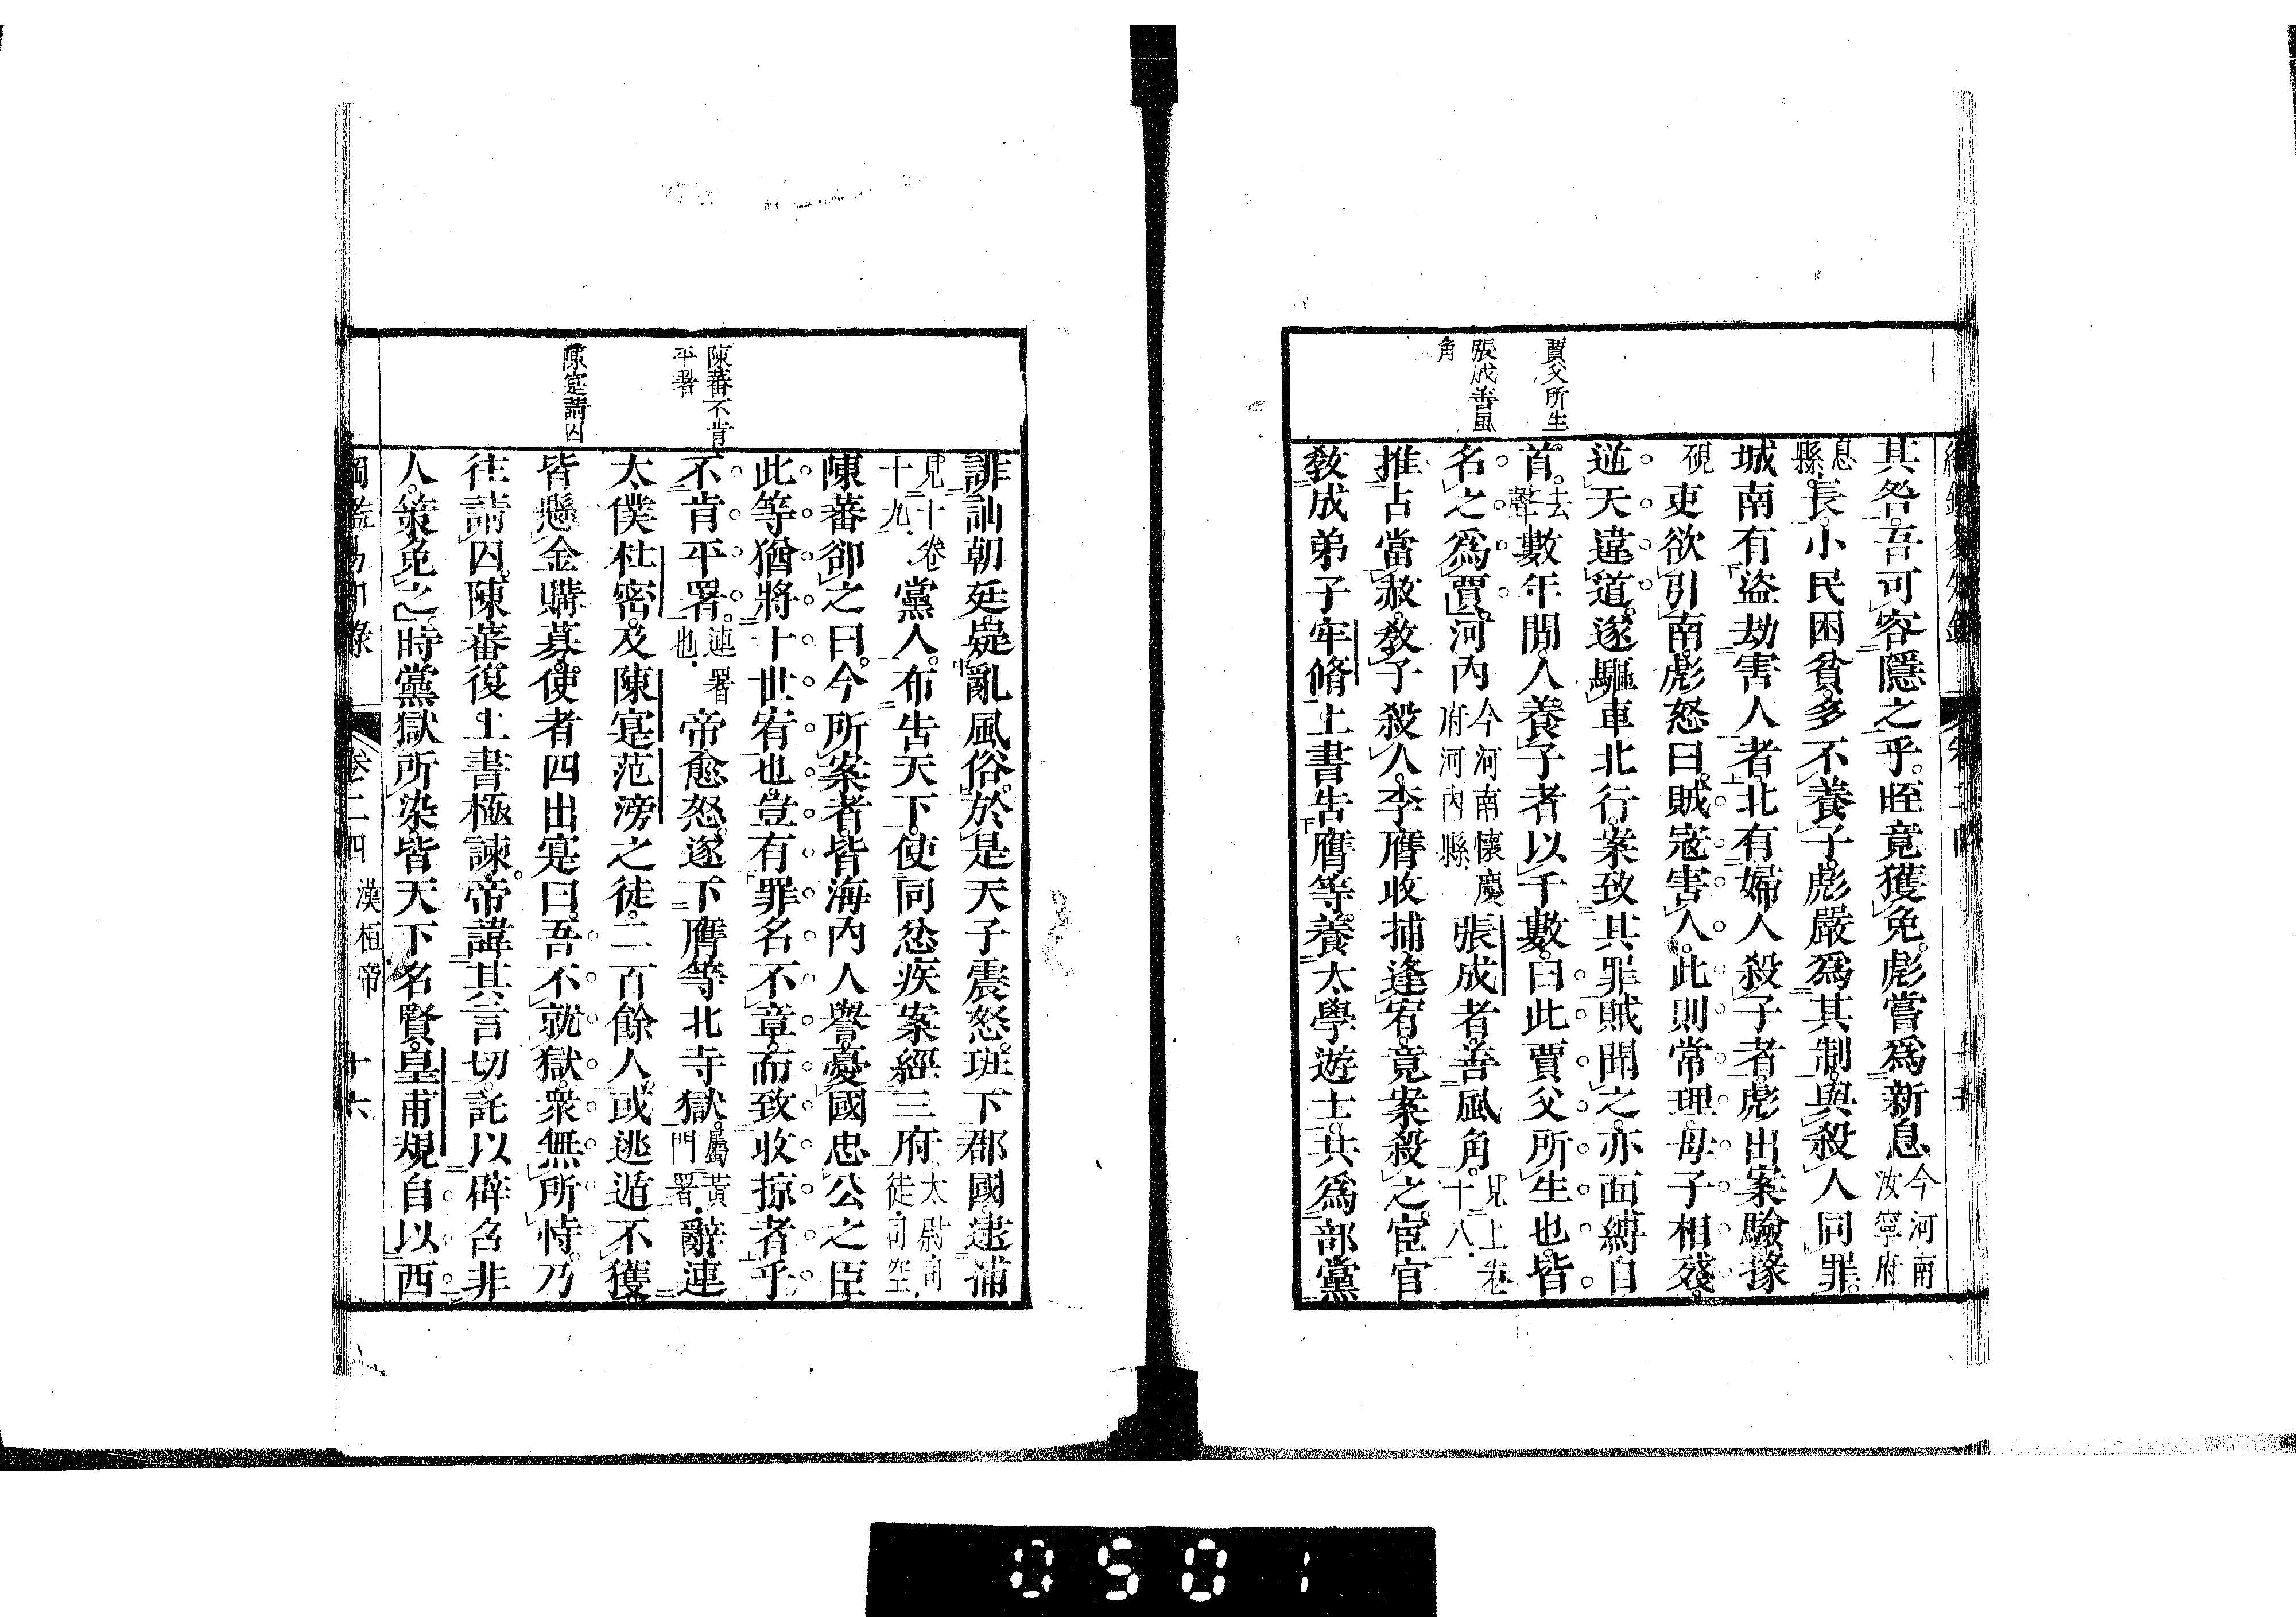 賈父所生
張成善風
角
其咎。吾可容隱之乎。晊竟獲免。彪嘗爲新息今河南汝寧府
息縣。長。小民困貧。多不養子。彪嚴爲其制。與殺人同罪。
城南有盜劫害人者。北有婦人殺子者。彪出案驗。掾
硯吏欲引南。彪怒曰。賊寇害人。此則常理。母子相殘。
逆天違道。遂驅車北行。案致其罪。賊聞之。亦面縛自
首。去聲數年間。人養子者以千數。曰此賈父所生也。皆
名之爲賈。河內今河南懷慶府河內縣張成者。善風角。見上卷十八。
推占當赦。教子殺人。李膺收捕。逢宥。竟案殺之。宦官
敎成弟子牢脩。上書告膺等。養太學遊士。共爲部黨
陳蕃不肯
平署
陳寔請囚
誹訕朝廷。疑亂風俗。於是天子震怒。班下郡國。逮捕
見十卷十九。黨人。布告天下。使同忿疾。案經三府。太尉司徒司空。
陳蕃卻之曰。今所案者。皆海內人譽。憂國忠公之臣。
此等猶將十世宥也。豈有罪名不章。而致收掠者乎
不肯平署。連署也。帝愈怒。遂下膺等北寺獄。屬黃門署。辭連
太僕杜密。及陳寔范滂之徒。二百餘人。或逃遁不獲
皆懸金購募。使者四出。寔曰。吾不就獄。衆無所恃。乃
往請囚。陳蕃復上書極諫。帝諱其言切。託以辟召非
人。策免之。時黨獄所染。皆天下名賢。皇甫規自以西
綱鑑易知錄 卷二四 漢桓帝 十六
0501